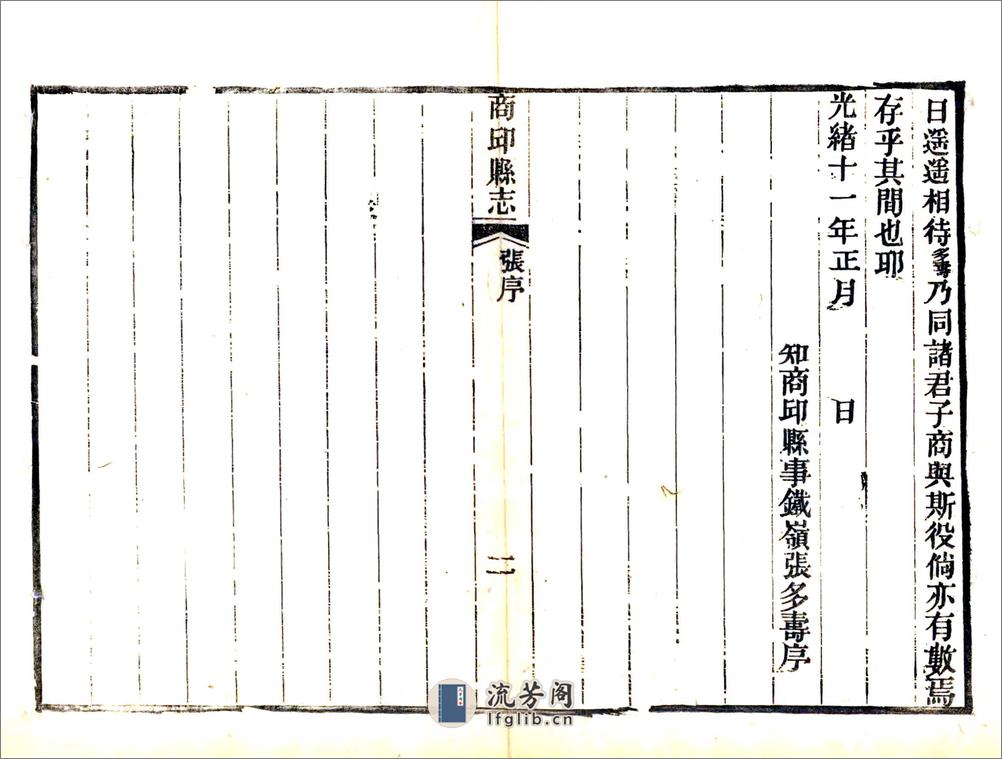 日遥遥相待多壽乃同諸君子商與斯役倘亦有數焉
存乎其間也耶
光緒十一年正月　日
知商邱縣事鐵嶺張多壽序
商邱縣志
張序
二
流芳阁
lfglib.cn